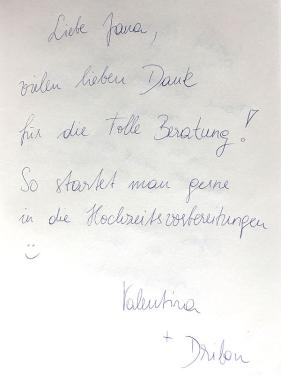 Liebe Jana,
vielen lieben Dank
für die Tolle Beratung!
So startet man gerne
in die Hochzeitsvorbereitungen
:)
Valentina
+
Driton